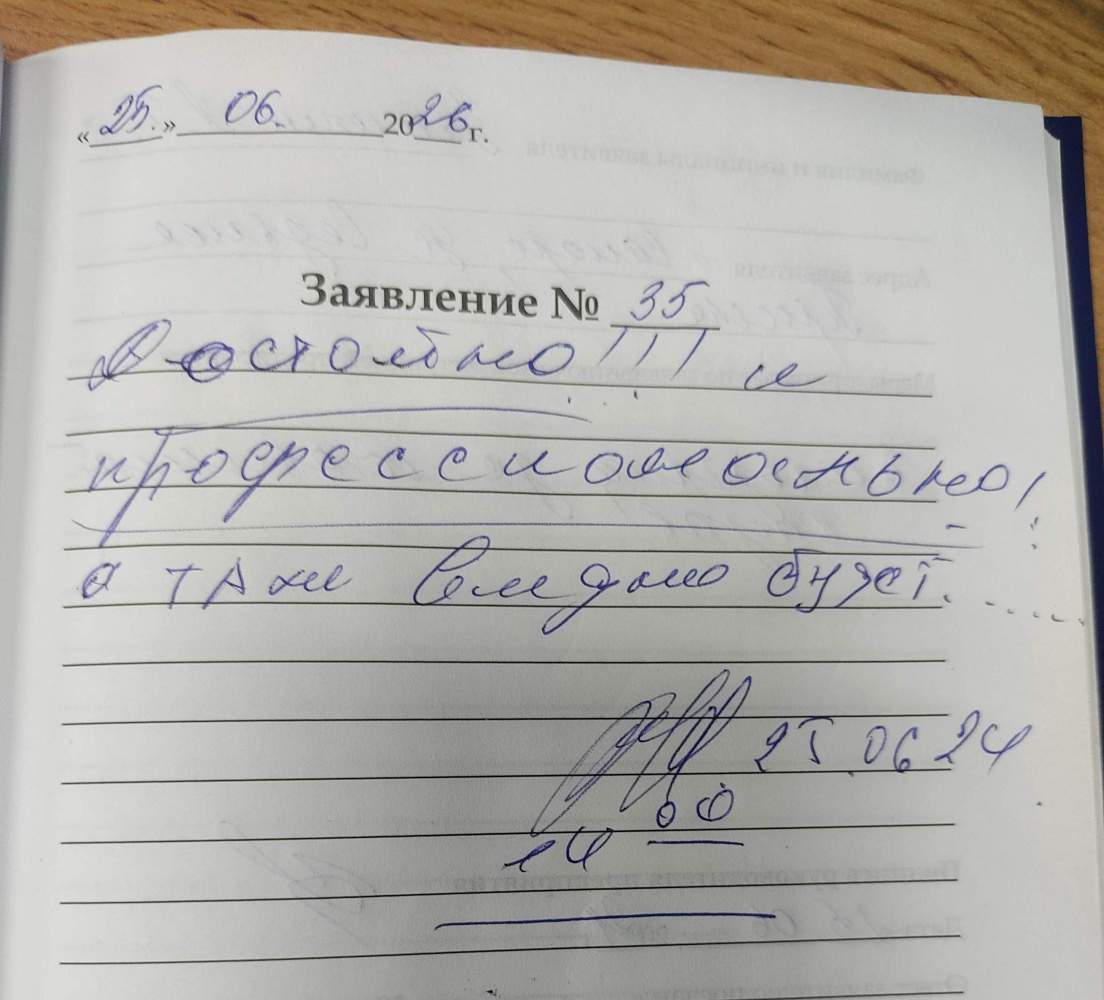 «25.» 06. 2026 г.
Заявление № 35
Достойно!!! и
профессионально!
а там видно будет.....
25.06 24
14 00